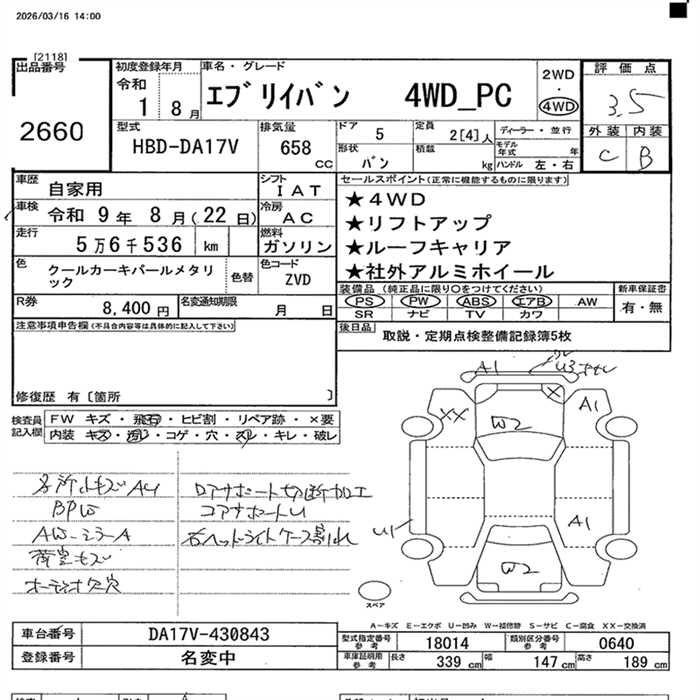 2026/03/16 14:00
[2118]
出品番号
2660
初度登録年月
令和
1 8月
車名・グレード
エブリイバン 4WD_PC
2WD
・
4WD
評価点
3.5
外装 内装
C B
型式
HBD-DA17V
排気量
658 CC
ドア 5
形状
バン
定員 2[4]人
積載 kg
ディーラー・並行
モデル年式 年
ハンドル 左・右
車歴 自家用
シフト
IAT
車検 令和 9年 8月(22日)
冷房
AC
走行 5万6千536 km
燃料
ガソリン
色 クールカーキパールメタリック
色替
色コード
ZVD
R券 8,400円
名変通知期限 月 日
セールスポイント(正常に機能するものに限ります)
★4WD
★リフトアップ
★ルーフキャリア
★社外アルミホイール
装備品(純正品に限り○をつけてください)
新車保証書
PS PW ABS エアB AW
SR ナビ TV カワ
有・無
後日品 取説・定期点検整備記録簿5枚
注意事項申告欄(不具合内容等は具体的に記入して下さい)
修復歴 有〔箇所 〕
検査員記入欄
FW キズ・飛石・ヒビ割・リペア跡・×要
内装 キズ・汚れ・コゲ・穴・スレ・キレ・破レ
各所小キズAU
BPW
AW-ミラーA
荷室キズ
オーディオ欠穴
ロアサポート切断加工
コアサポートU
右ヘットライトケース割れ
A1
U3
XX
X
A1
W2
A1
U1
W2
スペア
A-キズ E-エクボ U-凹み W-補修跡 S-サビ C-腐食 XX-交換済
車台番号 DA17V-430843
登録番号 名変中
型式指定番号参考 18014
類別区分番号参考 0640
車庫証明用参考 長さ 339cm 幅 147cm 高さ 189cm